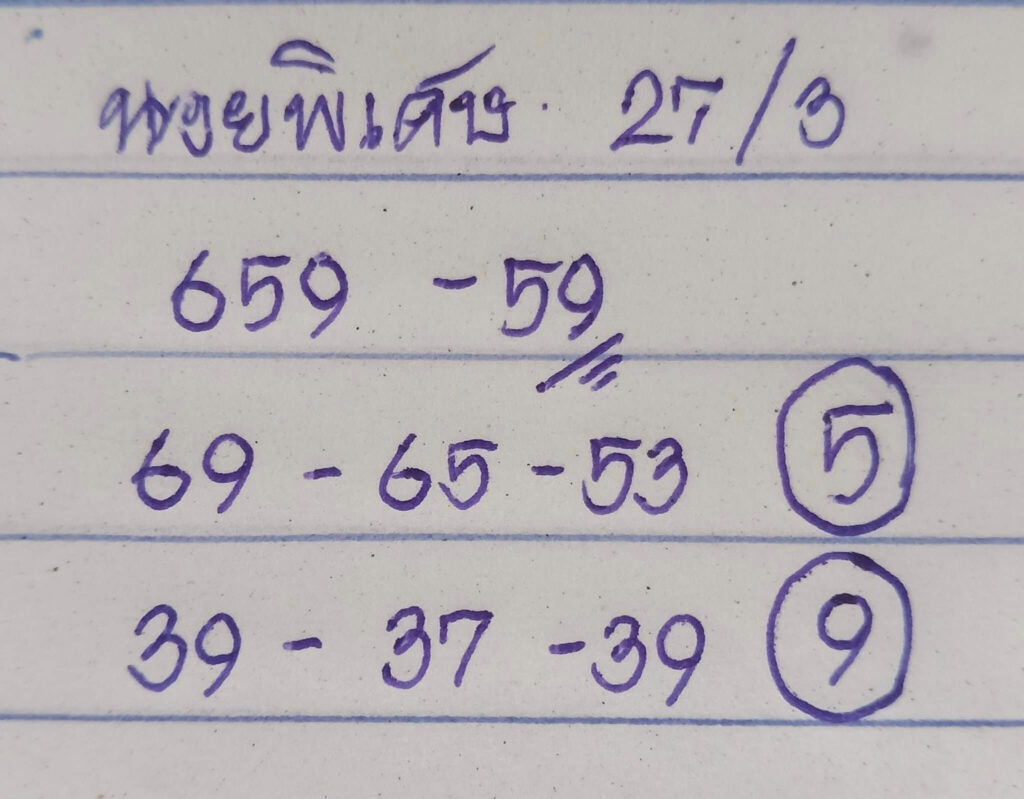 นอยพิเศษ 27/3
659 - 59
69 - 65 - 53 5
39 - 37 - 39 9